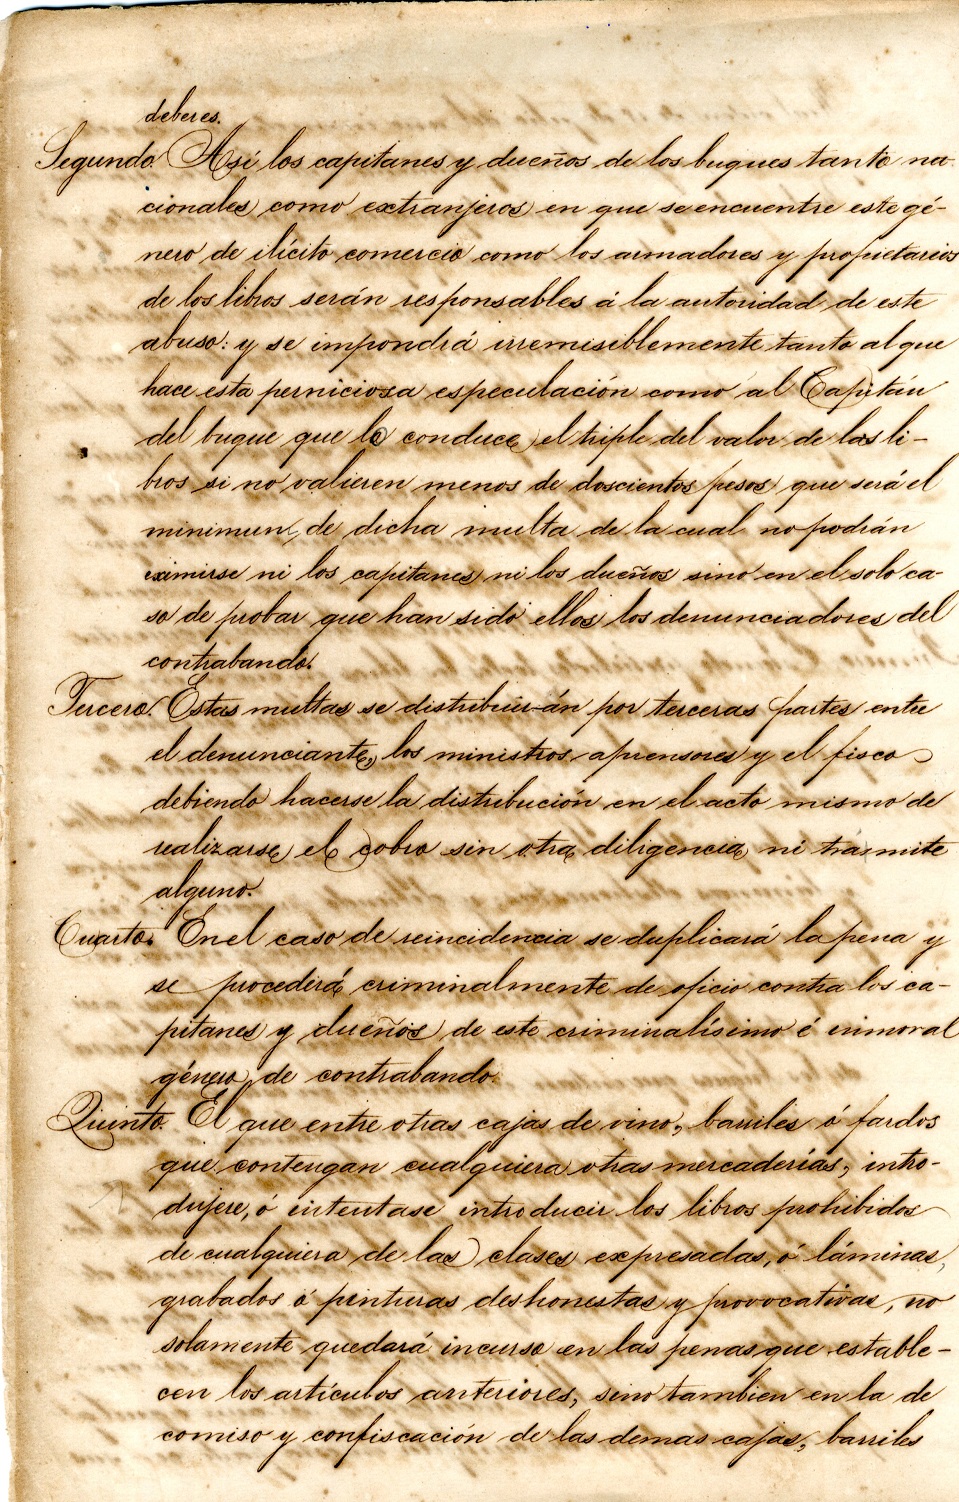 deberes.
Segundo. Así los capitanes y dueños de los buques tanto na-
cionales como extranjeros en que se encuentre este gé-
nero de ilícito comercio como los armadores y propietarios
de los libros serán responsables á la autoridad de este
abuso: y se impondrá irremisiblemente tanto al que
hace esta perniciosa especulación como al Capitán
del buque que lo conduce, el triple del valor de los li-
bros si no valieren menos de doscientos pesos, que será el
minimun, de dicha multa de la cual no podrán
eximirse ni los capitanes ni los dueños sino en el solo ca-
so de probar que han sido ellos los denunciadores del
contrabando.
Tercero. Estas multas se distribuirán por terceras partes entre
el denunciante, los ministros aprensores y el fisco
debiendo hacerse la distribución en el acto mismo de
realizarse el cobro sin otra diligencia ni trámite
alguno.
Cuarto. En el caso de reincidencia se duplicará la pena y
se procederá criminalmente de oficio contra los ca-
pitanes y dueños de este criminalísimo é inmoral
género de contrabando.
Quinto. El que entre otras cajas de vino, barriles ó fardos
que contengan cualquiera otras mercaderías, intro-
dujere, ó intentase introducir los libros prohibidos
de cualquiera de las clases expresadas, ó láminas,
grabados ó pinturas deshonestas y provocativas, no
solamente quedará incurso en las penas que estable-
cen los artículos anteriores, sino tambien en la de
comiso y confiscación de las demas cajas, barriles